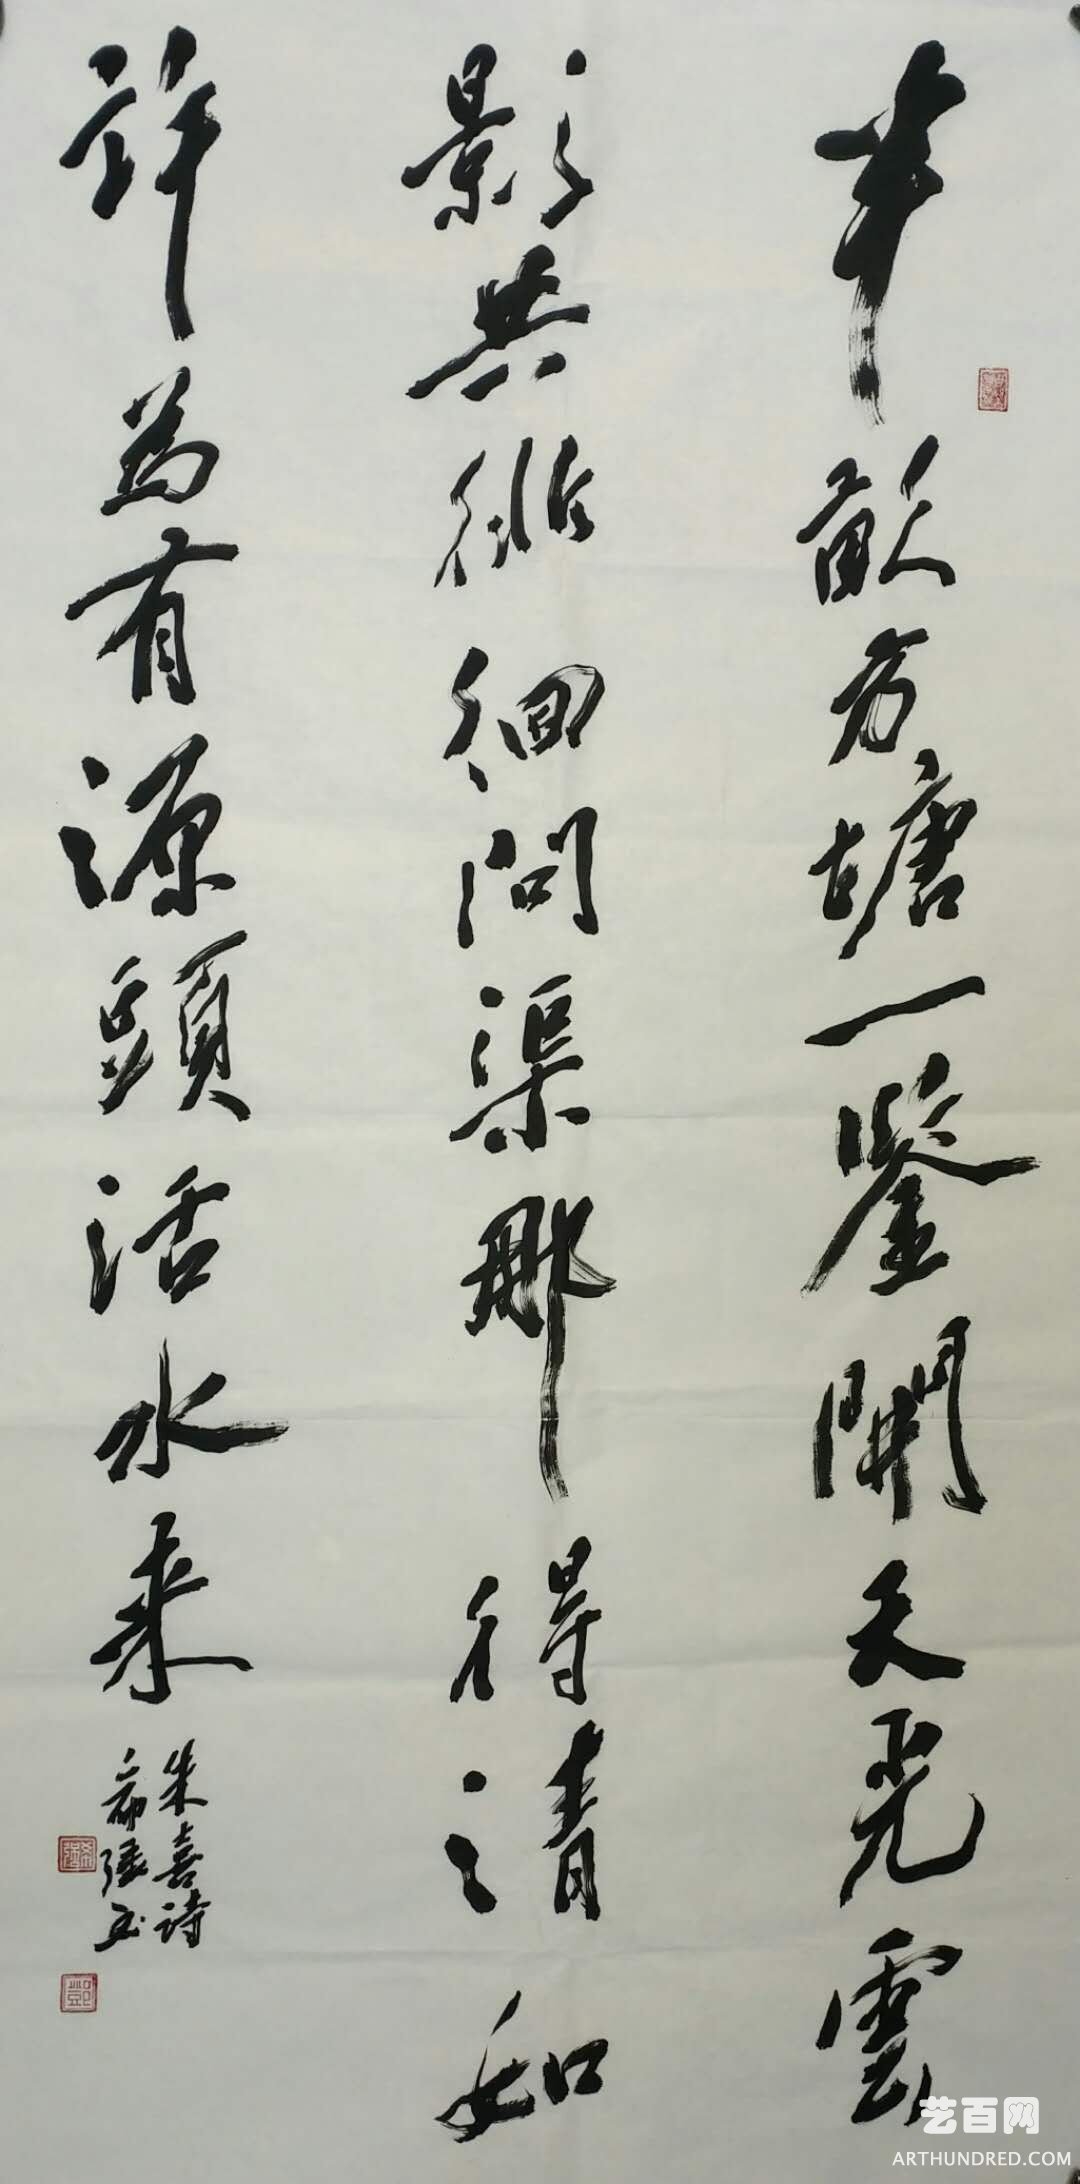 半畝方塘一鑒開天光雲
影共徘徊問渠那得清如
許為有源頭活水来
朱熹詩
希强书
鄧
艺百网
ARTHUNDRED.COM